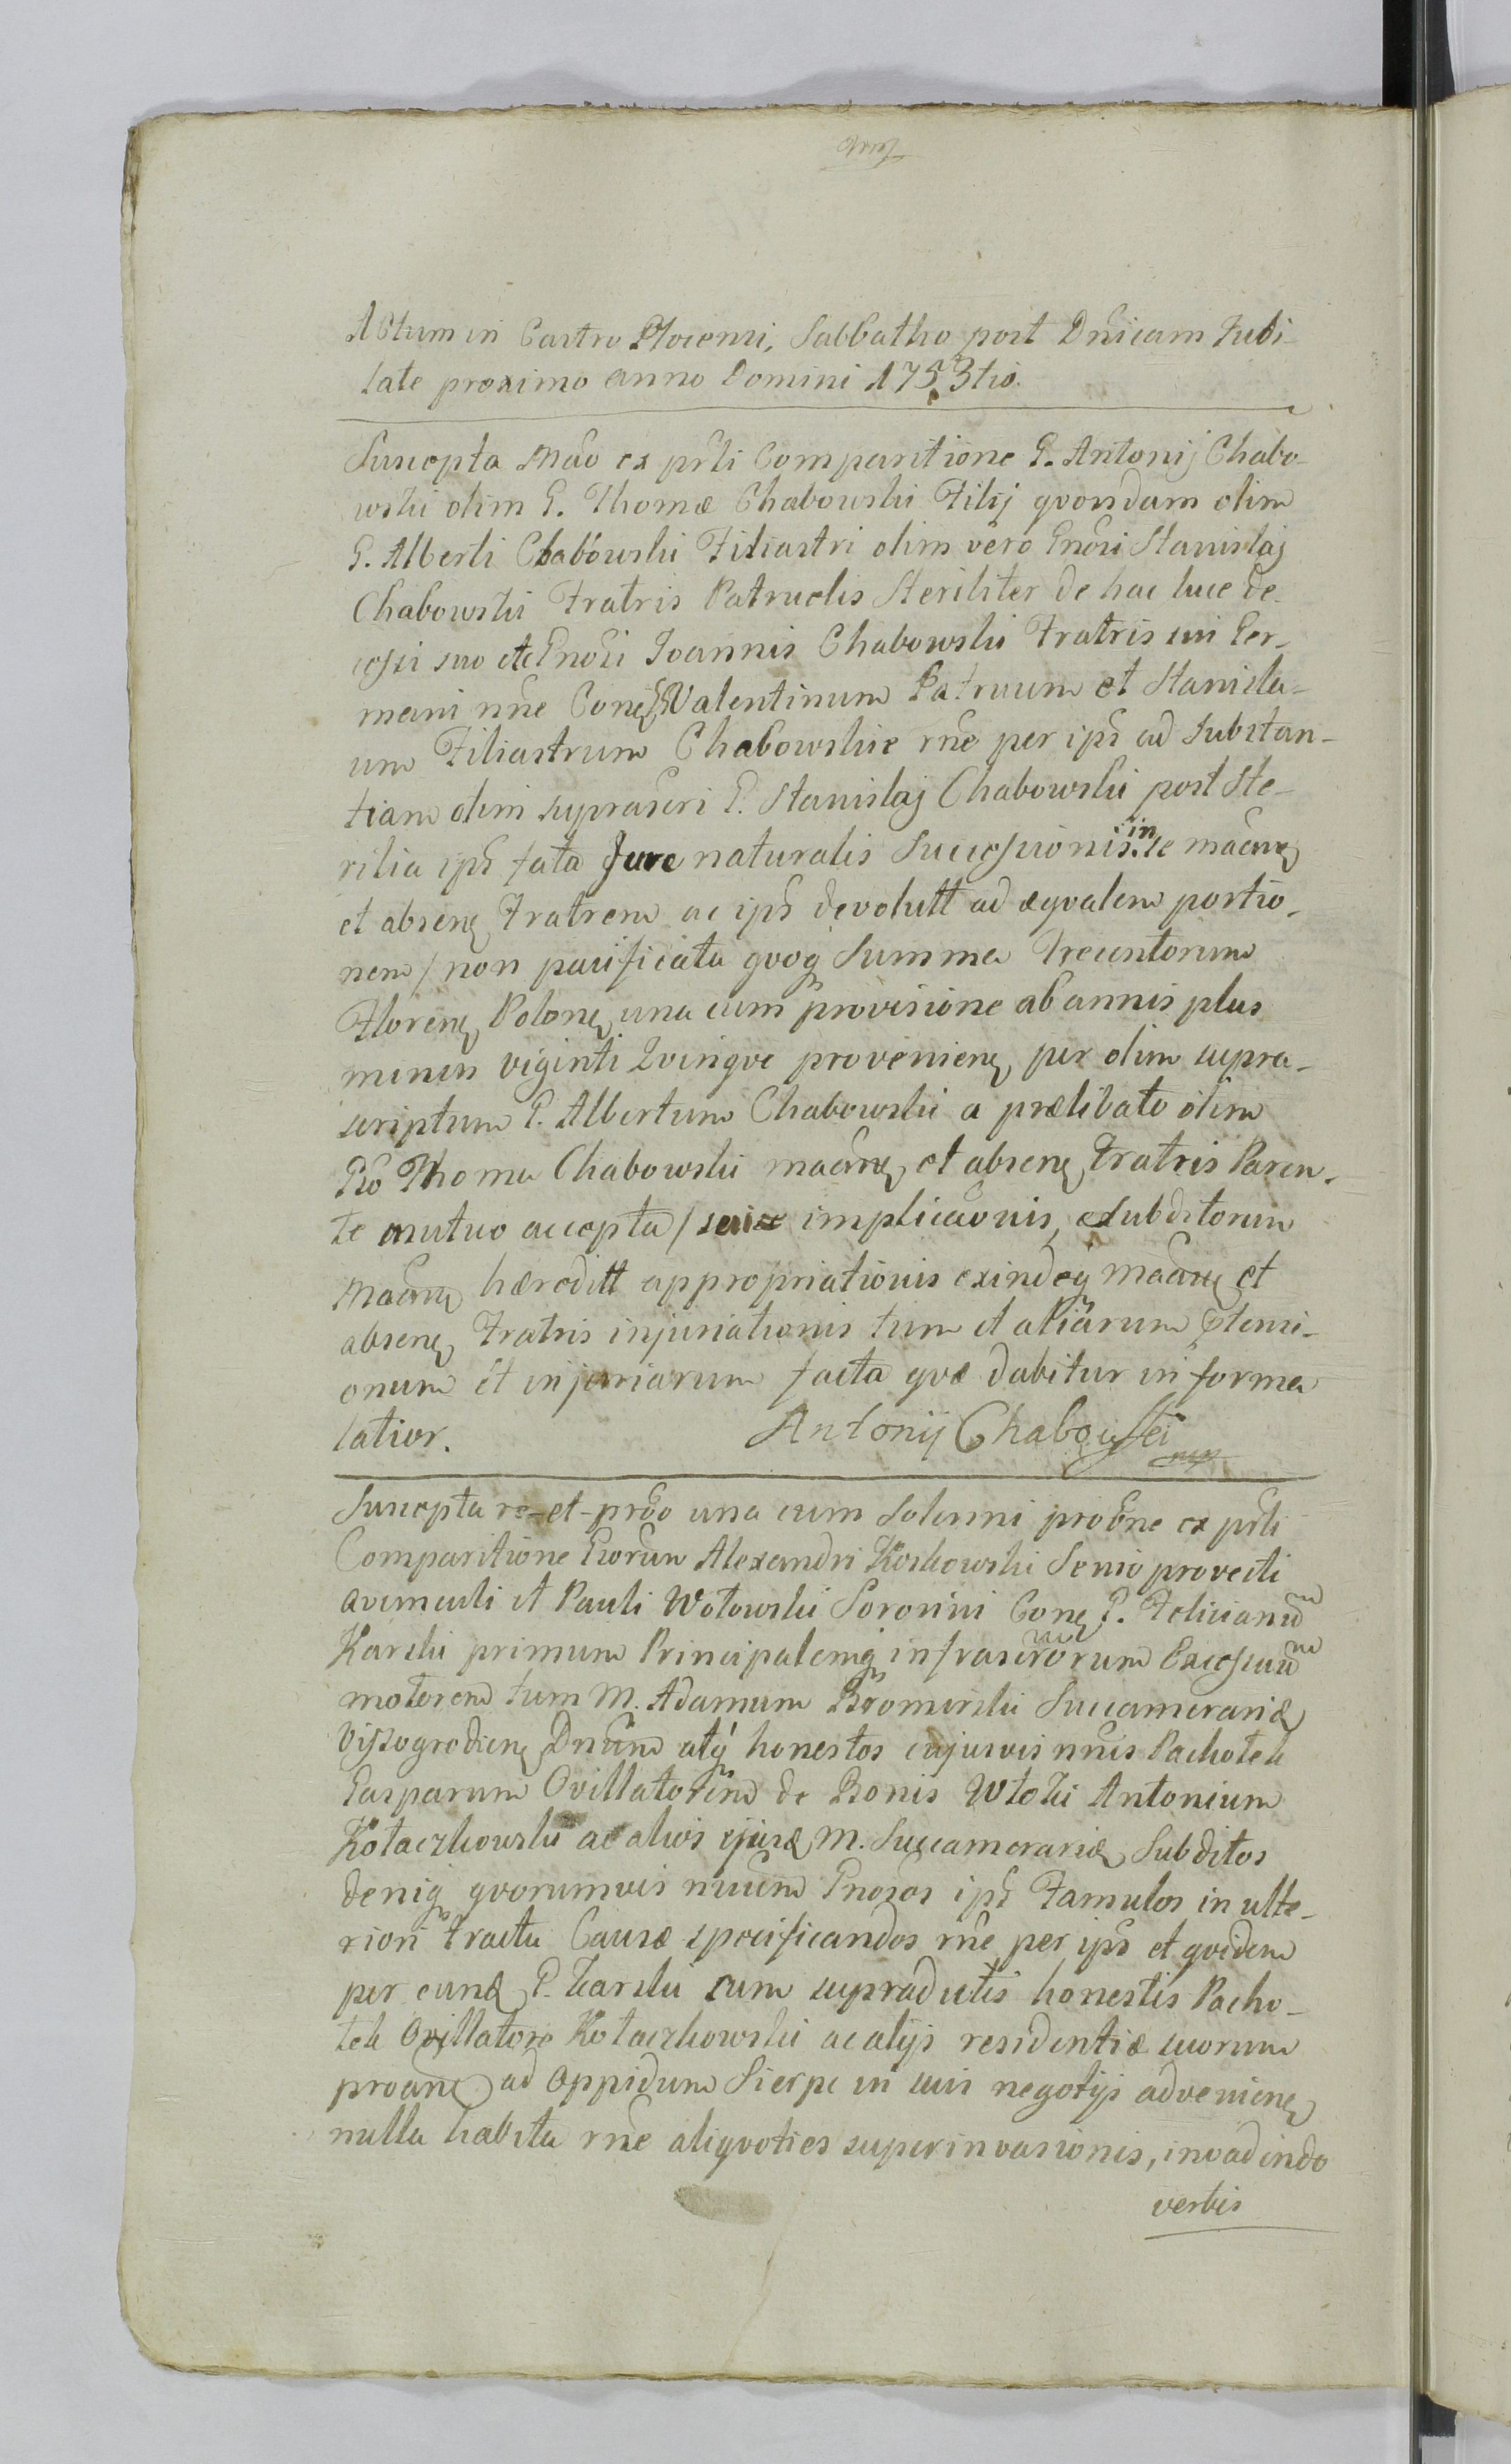 Actum in Castro Plocensi, Sabbatho post Dnicam Jubi-
late proximo Anno Domini 1753tio.
Suscepta Mãõ ex prsti Comparitione G. Antonij Chabo-
wski olim G. Thomæ Chabowski Filij qvondam olim
G. Alberti Chabowski Filiastri olim vero Gnõsi Stanislaj
Chabowski Fratris Patruelis Steriliter de hac luce de-
cessi suo et Gnõsi Joannis Chabowski Fratris sui Ger-
mani nñe Conę Valentinum Patruum et Stanisla-
um Filiastrum Chabowskie rñe per ips ad Substan-
tiam olim suprascri G. Stanislaj Chabowski post Ste-
rilia ips fata Jure naturalis Successionis in se
et absenę Fratrem ac ips devolutt ad æqvalem portio-
nem / non pacificata qvoq Summa Trecentorum
Florenę Polonę una cum provisione ab annis plus
minus viginti Qvinqve provenienę per olim supra-
scriptum G. Albertum Chabowski a prælibato olim
Thoma Chabowski et absenę Fratris Paren-
te mutuo accepta / implicaõnis, Subditorum
hæreditt appropriationis exindeq et
absenę Fratris injuriationis tum et aliarum
onum et injuriarum facta qvæ dabitur in forma
latior.
Antonij Chabowski
mp
Suscepta re-et-prõõ una cum Solenni probne ex prsti
Comparitione Alexandri Koskowski Senio provecti
avunculi et Pauli Wołowski Sororini Conę G. Felicianũ
Karski primum Principalemq infrascrorum Excessuũ
motorem tum M. Adamum Bromirski Succamerariæ
Wyszogrodienę Dnũm atq honestos cujusvis nñis Pachołek
Casparum Ovillatorem de Bonis Antonium
Kołaczkowski ac alios ejusd M. Succamerariæ Subditos
deniq qvorumvis nñium Gnosos ips Famulos in ulte-
riori tractu Causæ specificandos rñe per ips et qvidem
per eund G. Karski cum supradictis honestis Pacho-
łek Ovillatore Kołaczkowski ac alijs residentiæ suorum
ad Oppidum Sierpc in suis negotijs advenienę
nulla habita rñe aliqvoties superinvasionis, invadendo
verbis